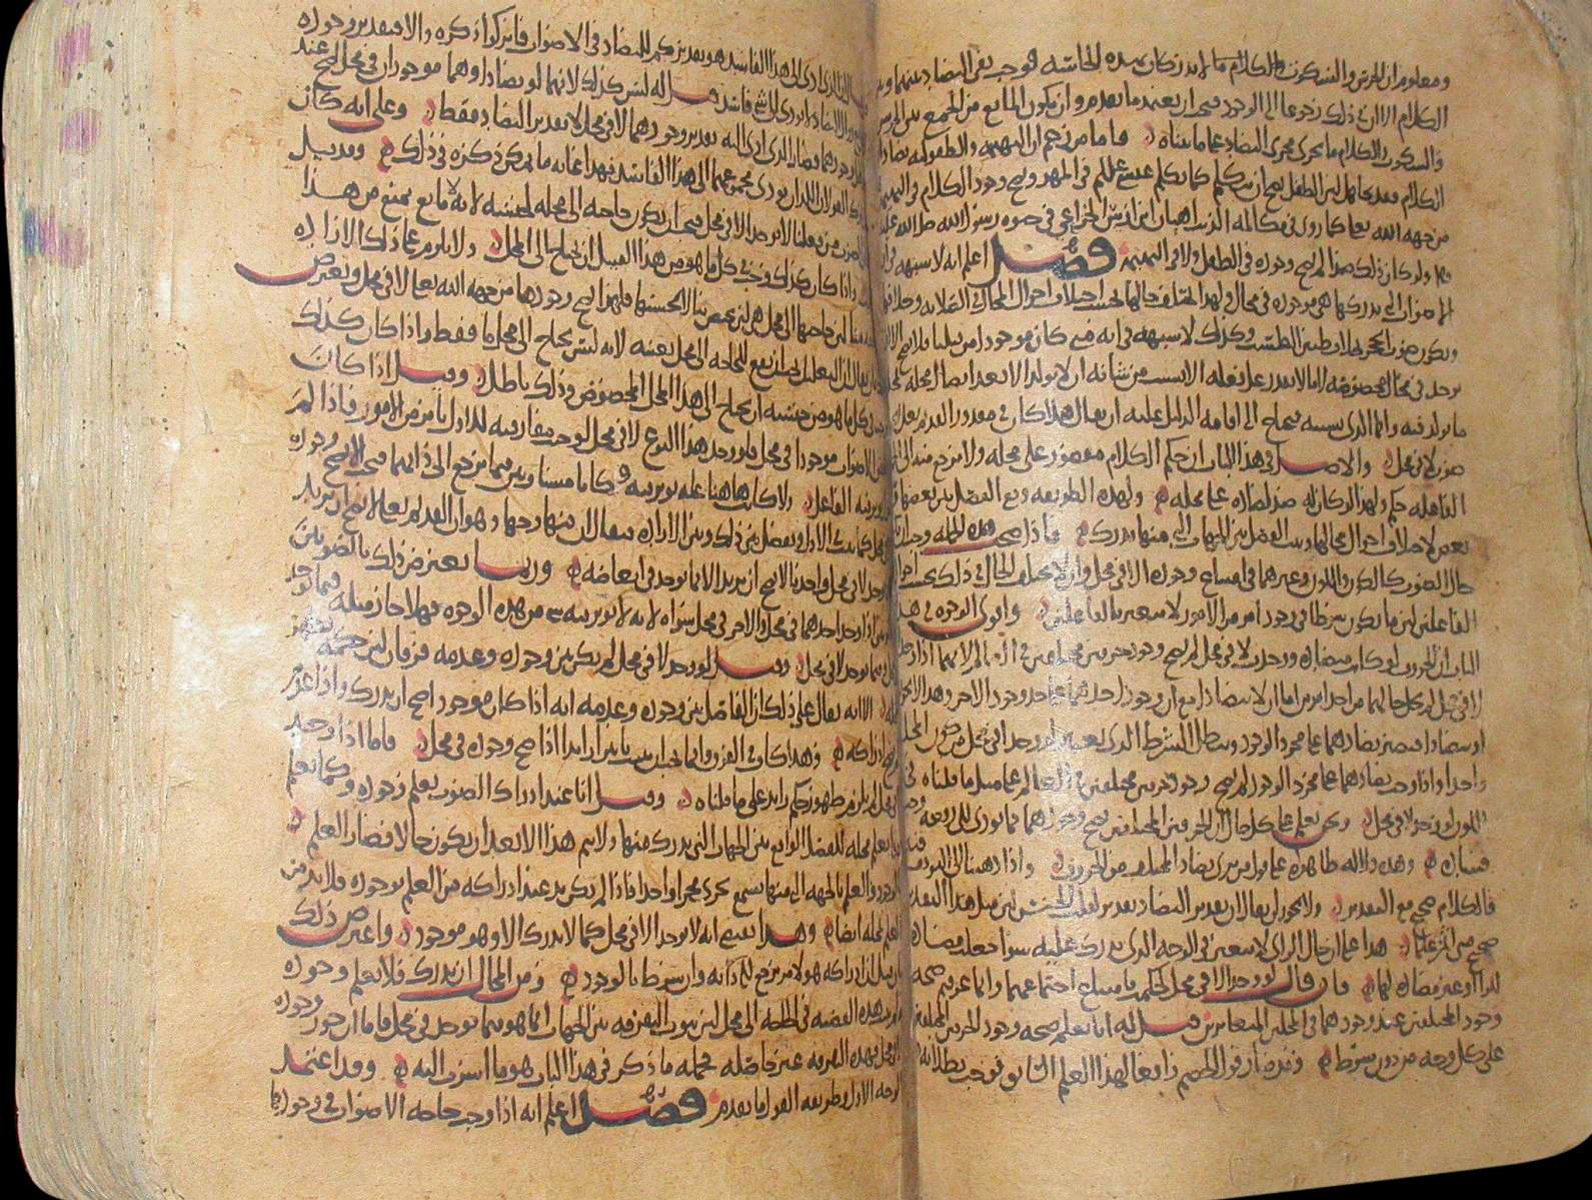 ومعلوم ان الخرس والسكون والكلام مما لا يدركان بهذه الحاسة فوجب نفي التضاد بينهما
الكلام الا ان ذلك رجوعا الى الوجود فيجب ان يعتمد ما تقدم وان يكون المانع من الجمع بين الخرس
والسكون والكلام ما يجري مجرى التضاد على ما بيناه فاما من زعم ان البهيمة والطفولية تضاد
الكلام فقد تجاهل لان الطفل يصح ان يتكلم كما تكلم عيسى عليه السلم في المهد ويصح وجود الكلام في البهيمة
من جهة الله تعالى كما روي في مكالمة الذئب اهبان ابن اوس الخزاعي في حيوة رسول الله صلى الله عليه
ولو كان ذلك ضدا لم يصح وجوده في الطفل ولا في البهيمة فصل اعلم انه لا شبهة في ان
الاصوات التي ندركها هي موجودة في محال ولهذا تختلف حالها بحسب اختلاف احوال المحال في الصلابة وخلافها
ويكون صوت الحجر بخلاف طنين الطست وكذلك لا شبهة في انه متى كان موجودا من قبلنا فلا يصح الا ان
يوجد في محال مخصوصة لانا لا نقدر على فعله الا بسبب من شانه ان لا يولد الا بعد
ما يولد فيه وانما الذي يشتبه فيحتاج الى اقامة الدليل عليه ان يقال هلا كان في مقدور القديم تعالى
صوت لا في محل والاصل في هذا الباب ان حكم الكلام مقصور على محله ولا يرجع منه الى
الفاعلة حكم ولهذا لو كان له ضد لضاده على محله ولهذه الطريقة وقع الفصل بين بعضها
بعض لاختلاف احوال محالها وثبت الفصل بين الجهات التي منها يدرك فاذا صح هذه الجملة وجب ان
حال الصوت كالكون واللون وغيرهما في امتناع وجوده الا في محل وان لا يختلف الحال في ذلك بحسب احوال
الفاعلين لان ما يكون شرطا في وجود امر من الامور لا يتغير بالفاعلين واقوى الوجوه في هذا
الباب ان الحروف لو كانت متضادة ووجدت لا في محل لم يصح وجود حرفين مختلفين في العالم لانهما اذا وجدا
لا في محل لم يخل حالهما من احد امرين اما ان لا يتضادا مع ان وجود احدهما على حد وجود الاخر وهذا لا يجوز
او يتضادا فيصير تضادهما على مجرد الوجود ويبطل الشرط الذي يعتبر لو وجدا في محل من كون المحل
واحدا واذا وجب تضادهما على مجرد الوجود لم يصح وجود حرفين مختلفين في العالم على مثل ما قلناه في
اللون لو وجد لا في محل ونحن نعلم على كل حال ان الحرفين المختلفين يصح وجودهما
فساده وهذه دلالة ظاهرة على قول من يرى تضاد المختلف من الحروف واذا ذهبنا الى التوقف
فالكلام صحيح مع التقدير ولا يجوز ان يقال ان تقدير التضاد تقدير لقلب الجنس لان مثل هذا التقدير
صحيح متى اثر علما هذا على ان حال الرائي لا تتغير في الوجه الذي يدرك عليه سوا جعلت متضادة
لذواتها او غير متضادة لها فان قال لو وجد الا في محل لحكم بامتناع اجتماعهما وانما عرفتم صحة
وجود المختلفين عند وجودهما في المحلين المتغايرين قيل له انا نعلم صحة وجود الحرفين المختلفين
على كل وجه من دون شرط وقد صار قولهم رافعا لهذا العلم الثابت فوجب بطلانه
الذي ادى الى هذا الفاسد هو تقديركم للتضاد في الاصوات فاتركوا ذكره والا فتقدير وجوده
قيل له ليس كذلك لانهما لو تضادا وهما موجودان في محل لصح عند
وجودهما فصار الذي ادى اليه تقدير وجودهما لا في محل لا تقدير التضاد فقط وعلى انه كان
القولان اللذان يؤدي مجموعهما الى هذا الفاسد فهذا غاية ما يمكن ذكره في ذلك وقد قيل
الصوت من فعلنا لا يوجد الا في محل فيجب ان يكون حاجته الى محله لجنسه لانه لا مانع يمنع من هذا
واذا كان كذلك وجب في كل ما هو من هذا القبيل ان يحتاج الى المحل ولا يلزم على ذلك الارادة
لان حاجتها الى محل هو لان يختص بنا لا لجنسها فلهذا يصح وجودها من جهة الله تعالى لا في محل ويعترض
بان يقال ان التعليل يجب ان يقع للحاجة الى محل بعينه لانه ليس يحتاج الى محل ما فقط واذا كان كذلك
فيجب في كل ما هو من جنسه ان يحتاج الى هذا المحل المخصوص وذلك باطل وقيل اذا كان
الاصوات موجودا في محل فلو وجد هذا النوع لا في محل لوجب مفارقته لذلك بامر من الامور فاذا لم
فيه الفاعل ولا كان هاهنا علة توثر فيه وكانا مستاويين فيما يرجع الى ذاتهما فيجب الا يصح وجوده
في محل كما ثبت في الاول ويفصل بين ذلك وبين الارادة فيقال ان فيها وجها وهو ان القديم تعالى لا يصح ان يريد
لا في محل واحدنا لا يصح ان يريد الا بما يوجد في ابعاضه وربما يعترض ذلك بالضدين
اذا وجد احدهما في محل والاخر في محل سواه لانه لا توثر فيه من هذه الوجوه فهلا جاز مثله فيما يوجد
وفيما يوجد لا في محل وقيل لو وجد لا في محل لم يكن بين وجوده وعدمه فرقان لان حكمه يظهر
الا انه يقال على ذلك ان الفاصل بين وجوده وعدمه انه اذا كان موجودا صح ان يدرك واذا عدم
ادراكه وهذا كاف في الفرق وانما يجب ان يثبت تاثيرا زايدا اذا صح وجوده في محل فاما اذا وجد
لم يلزم ظهور حكم زايد على ما قلناه وقيل انا عند ادراك الصوت نعلم وجوده وكما نعلم
نعلم محله للفصل الواقع بين الجهات التي يدرك منها ولا يتم هذا الا بعد ان يكون حالا فصار العلم
بالوجود والعلم بالجهة التي منها يسمع يجري مجرا واحدا فاذا لم يكن بد عند ادراكه من العلم بوجوده فلا بد من
العلم بمحله ايضا وهذا يقتضي انه لا يوجد الا في محل كما لا يدرك الا وهو موجود واعترض ذلك
بان قيل ان ادراكه هو لامر يرجع الى ذاته وان شرط بالوجود ومن المحال ان يدرك فلا يعلم وجوده
هذه القضية في الحاجة الى محل لان ثبوت التفرقة بين الجهات انما هو فيما يوجد في محل فاما ان جوز وجوده
لا في محل فهذه التفرقة غير حاصلة فجملة ما ذكر في هذا الباب هو ما اشرت اليه وقد اعتمد
الوجه الاول وطريقة القول ما تقدم فصل اعلم انه اذا وجب حاجة الاصوات في وجودها